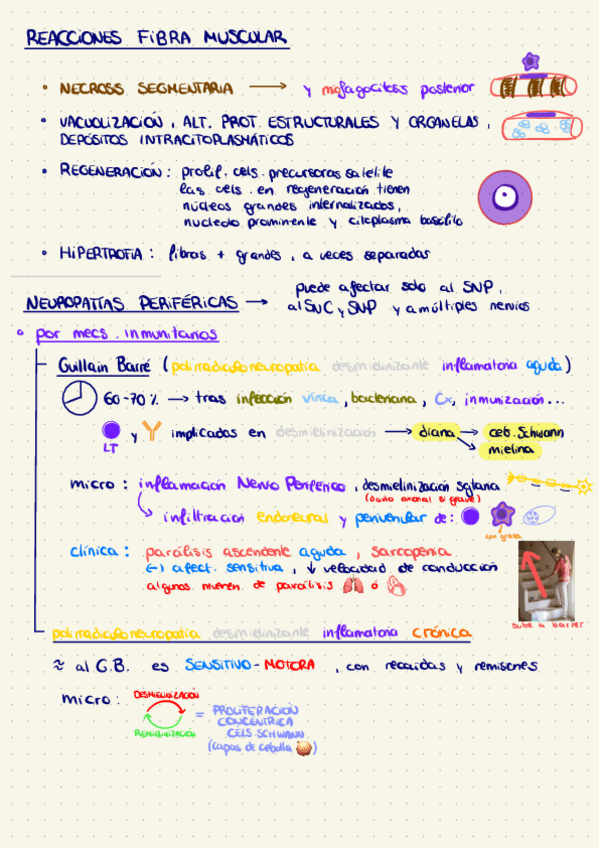 REACCIONES FIBRA MUSCULAR
• NECROSIS SEGMENTARIA → y miofagocitosis posterior
• VACUOLIZACIÓN, ALT. PROT. ESTRUCTURALES Y ORGANELAS,
DEPÓSITOS INTRACITOPLASMÁTICOS
• REGENERACIÓN: prolif. cels. precursoras satelite
las cels. en regeneración tienen
núcleos grandes internalizados,
nucleolo prominente y citoplasma basófilo
• HIPERTROFIA: fibras + grandes, a veces separadas
NEUROPATÍAS PERIFÉRICAS → puede afectar solo al SNP,
al SNC y SNP y a múltiples nervios
• por mecs. inmunitarios
Guillain Barré (polirradiculoneuropatía desmielinizante inflamatoria aguda)
60-70% → tras infección vírica, bacteriana, Cx, inmunización...
LT y implicados en desmielinización → diana → cels. Schwann
mielina
micro: inflamación Nervio Periférico, desmielinización sgtaria
(daño axonal si grave)
infiltración endoneural y perivenular de:
con grasa
clínica: parálisis ascendente aguda, sarcopenia
(-) afect. sensitiva, ↓ velocidad de conducción
algunos mueren de parálisis ó
sube a barrer
polirradiculoneuropatía desmielinizante inflamatoria crónica
≈ al G.B. es SENSITIVO-MOTORA, con recaídas y remisiones
micro: DESMIELINIZACIÓN
REMIELINIZACIÓN
= PROLIFERACIÓN
CONCENTRICA
CELS. SCHWANN
(capas de cebolla)